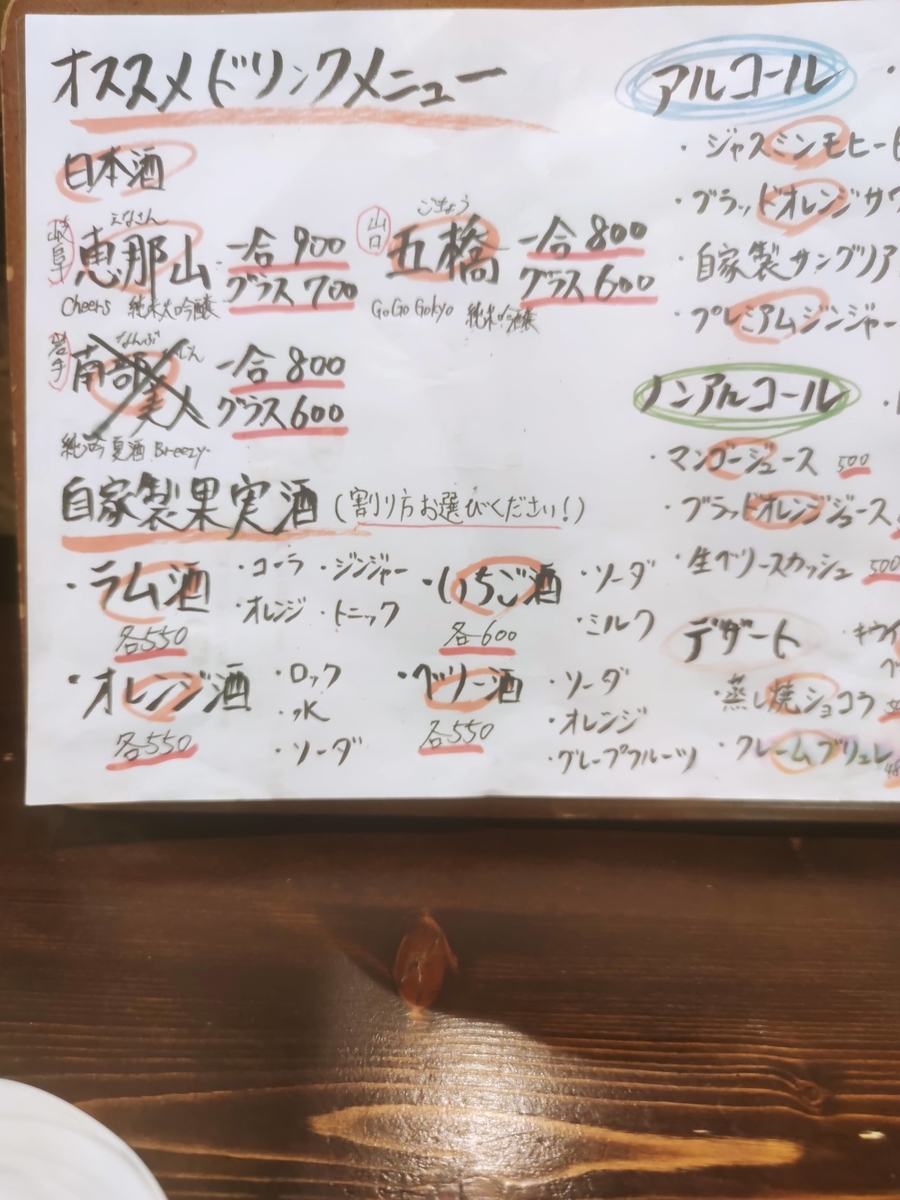 オススメドリンクメニュー
日本酒
岐阜
えなさん
恵那山
一合 900
グラス 700
Cheers 純米大吟醸
山口
ごきょう
五橋
一合 800
グラス 600
GoGo Gokyo 純米吟醸
岩手
なんぶ びじん
南部美人
一合 800
グラス 600
純吟 夏酒 Breezy
自家製果実酒 (割り方お選びください!)
・ラム酒
各550
・コーラ ・ジンジャー
・オレンジ ・トニック
・いちご酒
各600
・ソーダ
・ミルク
・オレンジ酒
各550
・ロック
・水
・ソーダ
・ベリー酒
各550
・ソーダ
・オレンジ
・グレープフルーツ
アルコール
・ジャスミンモヒー
・ブラッドオレンジサワ
・自家製サングリア
・プレミアムジンジャー
ノンアルコール
・マンゴージュース 500
・ブラッドオレンジジュース
・生ベリースカッシュ 500
デザート
・キウイ
・蒸し焼ショコラ
・クレームブリュレ